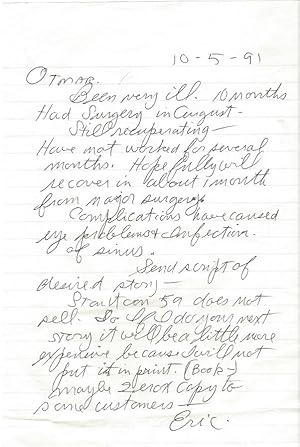 10-5-91
Otmar.
Been very ill. 10 months
Had Surgery in August-
Still recuperating—
Have not worked for several
months. Hopefully will
recover in about 1 month
from major surgery.
Complications have caused
eye problems & infection
of sinus.
Send script of
desired story—
Stanton 59 does not
sell. So If I do your next
story it will be a little more
expensive because I will not
put it in print. (Book-)
maybe Zerox Copy to
some customers—
Eric.